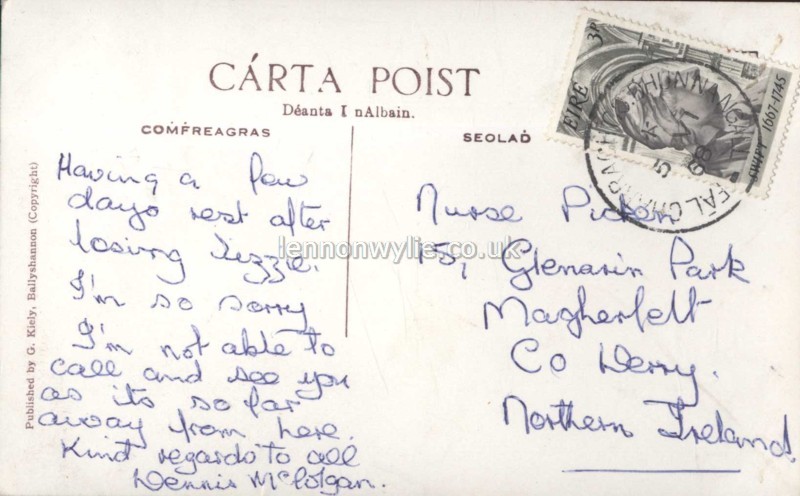 CÁRTA POIST
Déanta I nAlbain.
COMFREAGRAS
SEOLAD
Published by G. Kiely, Ballyshannon (Copyright)
Having a few
days rest after
losing Lizzie.
I'm so sorry
I'm not able to
call and see you
as its so far
away from here.
Kind regards to all
Dennis McColgan.
Nurse Picken
15, Glenarin Park
Magherfelt
Co Derry.
Northern Ireland.
3p
EIRE
SWIFT 1667-1745
lennonwylie.co.uk